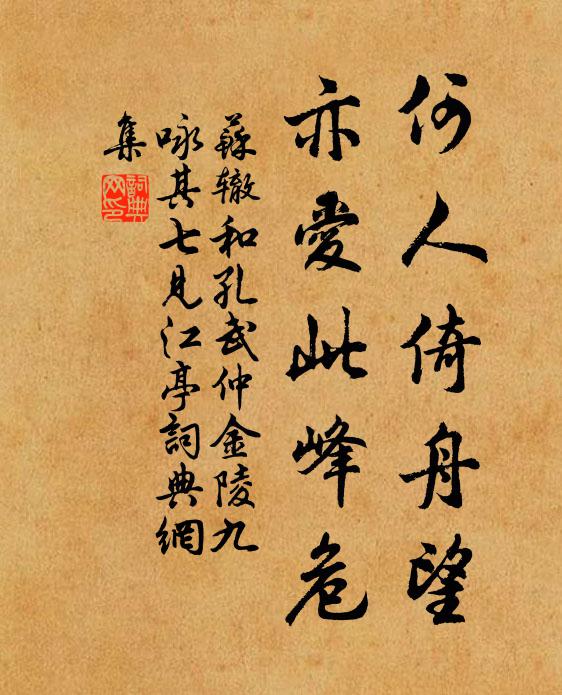 何人倚舟望
亦愛此峰危
蘇辙和孔武仲金陵九
咏其七見江亭詞典網
集
詞典
网印